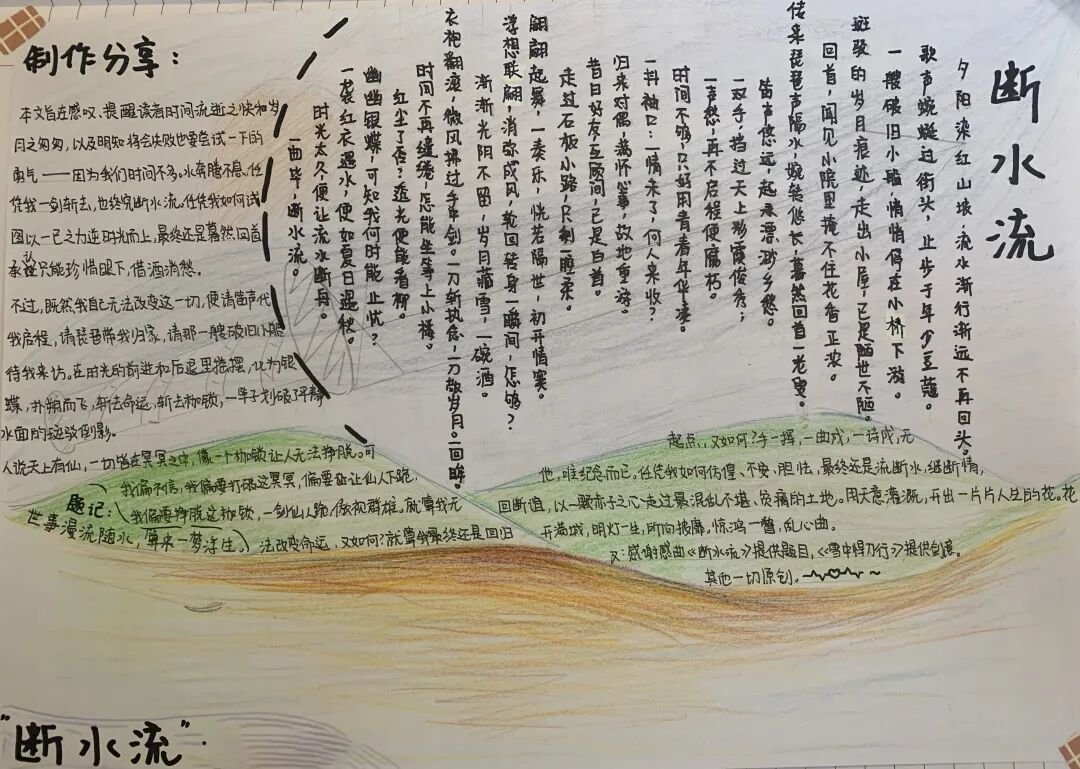 断水流
夕阳染红山坡，流水渐行渐远不再回头。
歌声蜿蜒过街头，止步于年少豆蔻。
一艘破旧小船悄悄停在小桥下游。
斑驳的岁月痕迹，走出小屋，已是陋世不陋。
回首，闻见小院里掩不住花香正浓。
传来琵琶声隔水，婉转悠长，蓦然回首一老叟。
笛声悠远，起来漂渺乡愁。
一双手挡过天上彩霞俊秀；
一声愁，再不启程便腐朽。
时间不够，只好用青春年华凑。
一抖袖口：一情未了，何人来收？
归来对偶，满怀等，故地重游。
昔日好友互顾间，已是白首。
走过石板小路，只剩腰柔。
翩翩起舞，一奏乐，恍若隔世，初开情窦。
浮想联翩，消弥成风，轮回转身一瞬间，怎够？
渐渐光阴不留，岁月藏雪，一碗酒。
衣袍翻滚，微风拂过手中剑。一刀斩执念，一刀敬岁月。一回眸。
时间不再缱绻，怎能坐等上小楼。
红尘了否？透光便能看柳。
幽幽银蝶，可知我何时能止忧？
一袭红衣遇水，便如夏日遇秋。
时光太久便让流水断舟。
一曲毕，断水流。
制作分享：
本文旨在感叹、提醒读者时间流逝之快和岁
月之匆匆，以及明知将会失败也要尝试一下的
勇气——因为我们时间不多。水奔腾不息，任
凭我一剑斩去，也终究断水流。任凭我如何试
图以一己之力逆时光而上，最终还是蓦然回首
只能珍惜眼下，借酒消愁。
不过，既然我自己无法改变这一切，便请笛声代
我启程，请琵琶带我归家，请那一艘破旧小船
待我来访。在时光的前进和后退里摇摆，化为银
蝶，扑朔而飞，斩去命运，斩去枷锁，一竿子划破了平静
水面的斑驳倒影。
人说天上有仙，一切皆在冥冥之中，像一个枷锁让人无法挣脱。可
我偏不信，我偏要打破这冥冥，偏要让仙人下跪，
我偏要挣脱这枷锁，一剑仙人跪，傲视群雄。就算我无
法改变命运，又如何？就算我最终还是回归
题记：
世事漫流随水，算来一梦浮生。
起点，又如何？手一挥，一曲成，一诗成，无
他，唯纪念而已。任凭我如何彷徨、不安、胆怯，最终还是流断水，继断情，
回断道，以一颗赤子之心走过最混乱不堪、贫瘠的土地。用天意灌溉，开出一片片人生的花。花
开满城，明灯一生，所向披靡。惊鸿一瞥，乱心曲。
又：感谢戏曲《断水流》提供题目，《雪中悍刀行》提供创意。
其他一切原创。
"断水流"